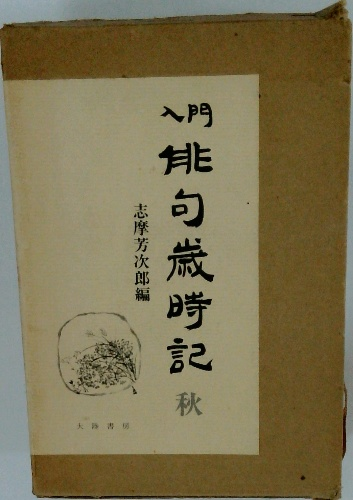 入門
俳句歳時記
秋
志摩芳次郎編
大陸書房